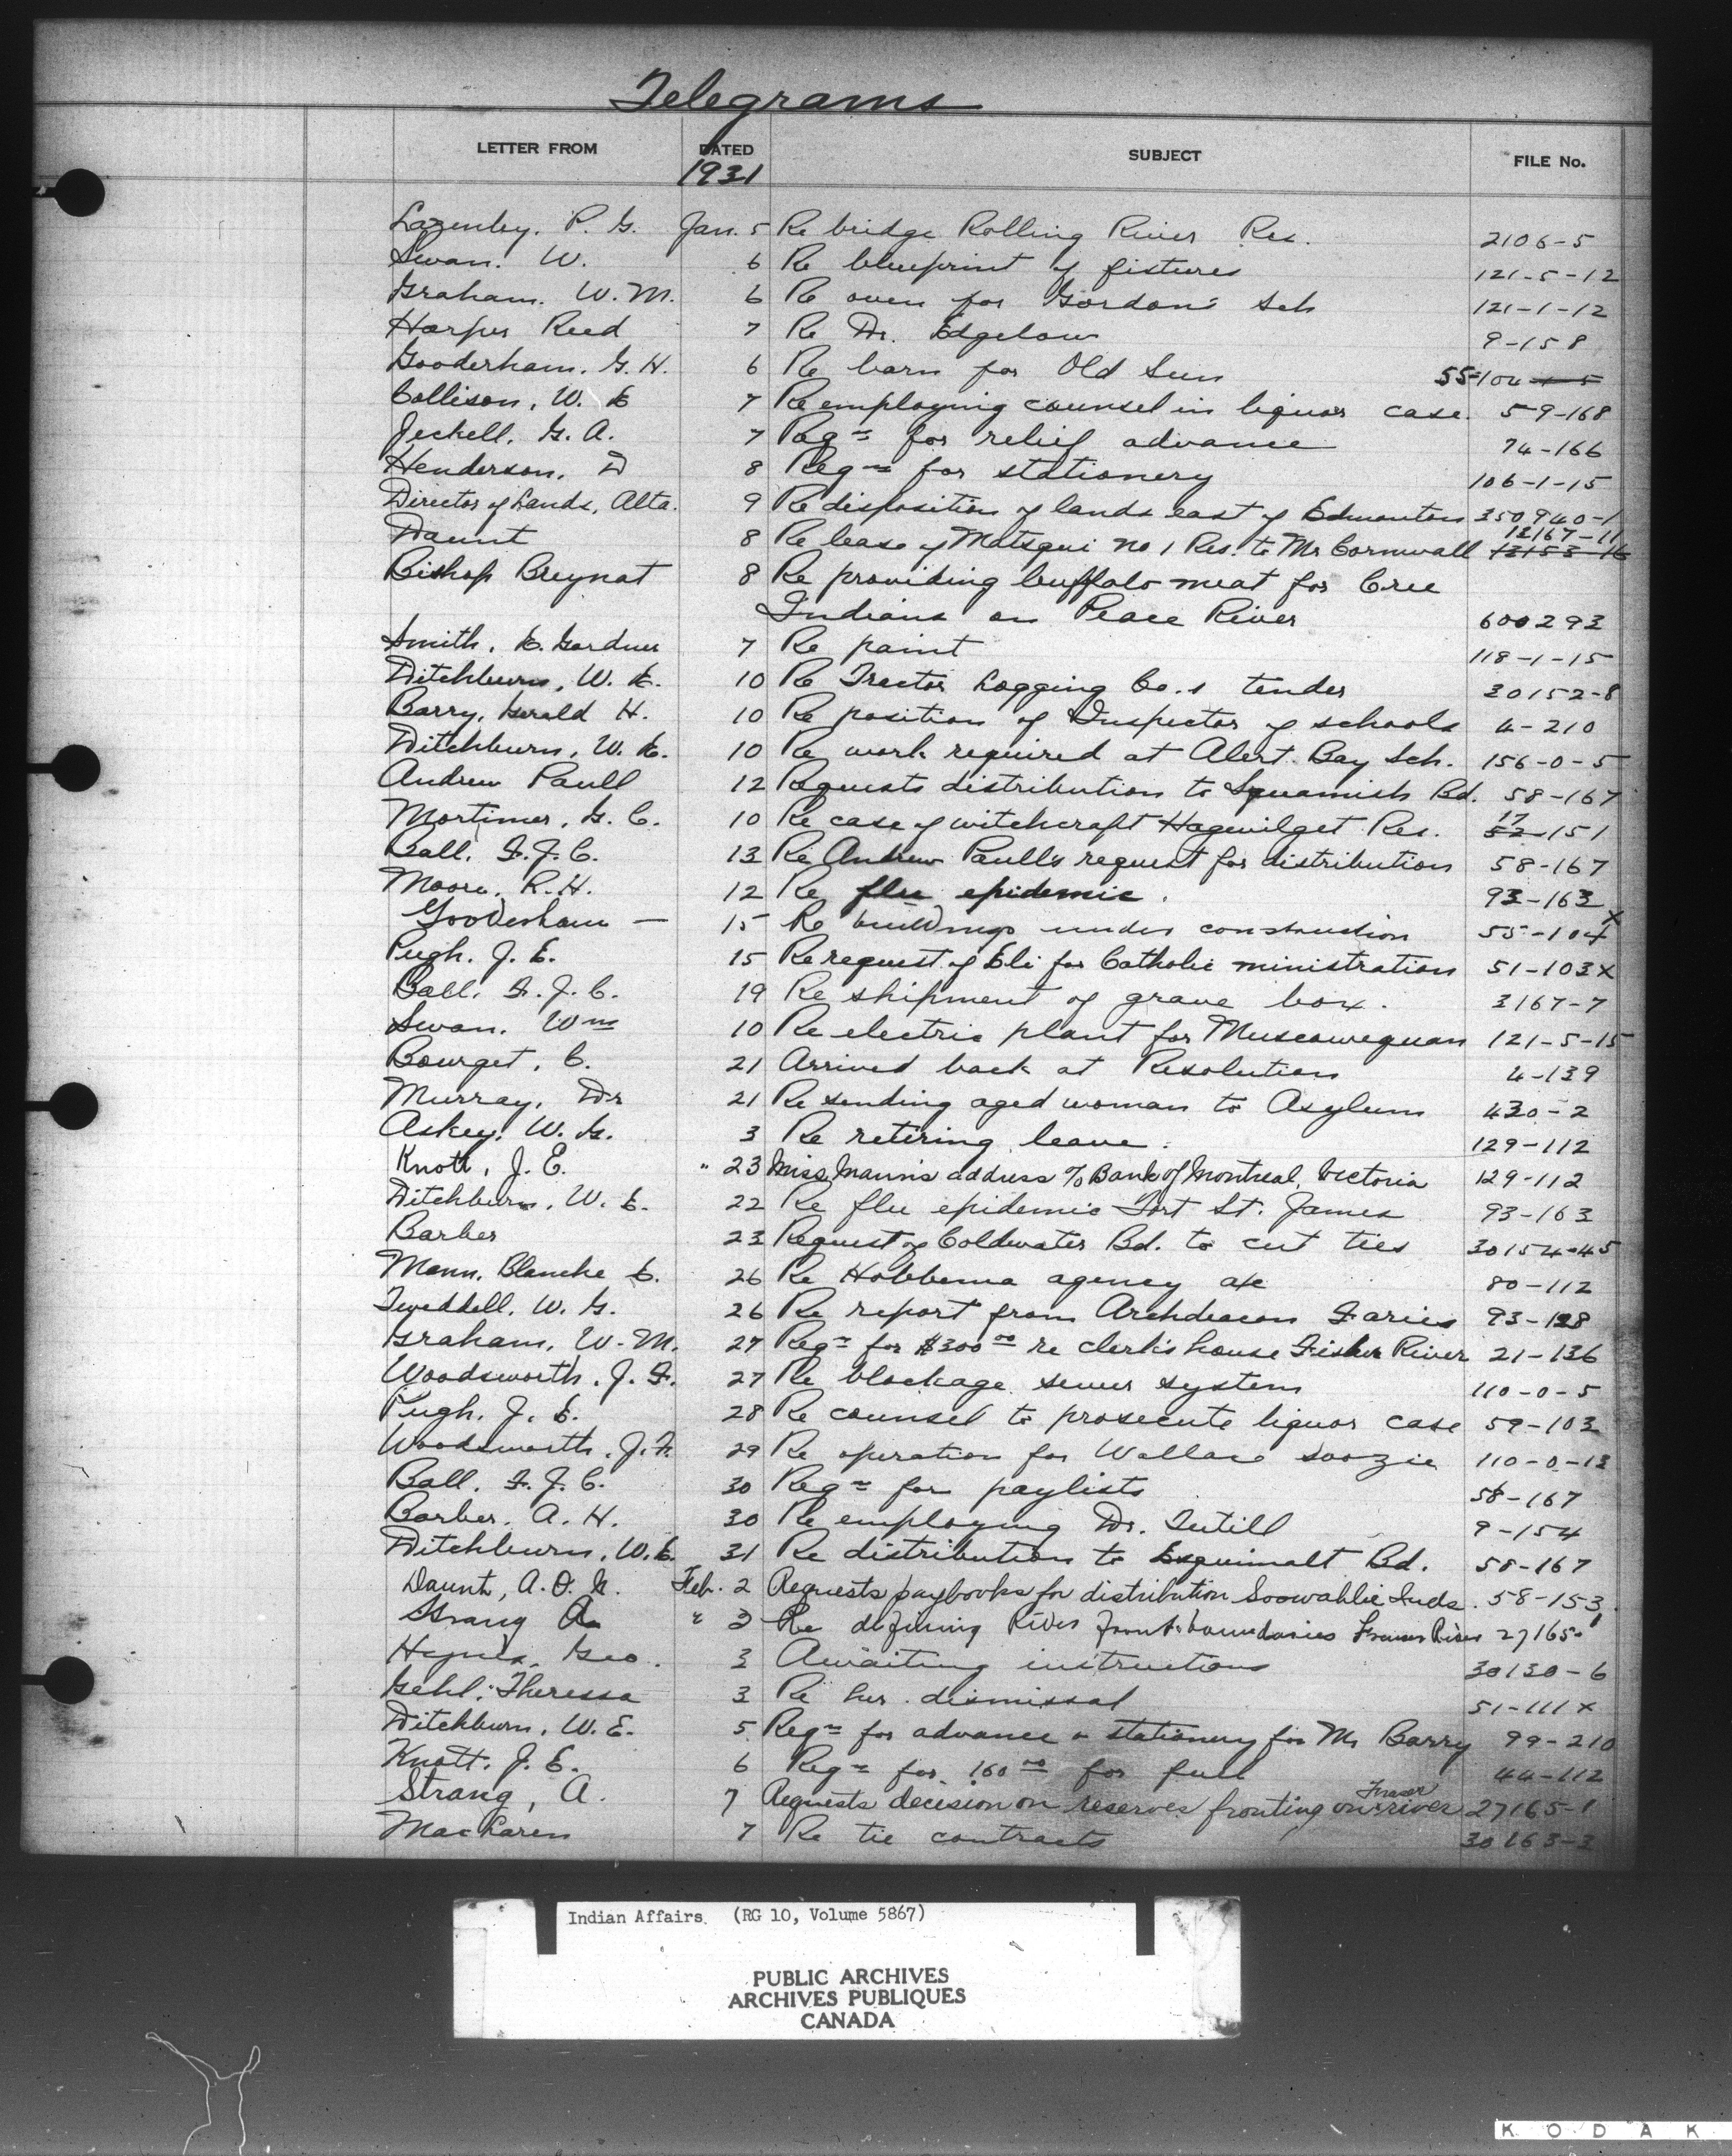 Telegrams
LETTER FROM DATED SUBJECT FILE No.
1931
Lazenby. P. G. Jan. 5 Re bridge Rolling River Res. 2106-5
Swan. W. 6 Re blueprint of fixtures 121-5-12
Graham. W. M. 6 Re oven for Gordon's Sch 121-1-12
Harper Reed 7 Re Dr. Edgelow 9-158
Gooderham. G. H. 6 Re barn for Old Sun 55-104
Collison, W. E 7 Re employing counsel in liquor case. 59-168
Jeckell. G. A. 7 Reqn for relief advance 74-166
Henderson, D 8 Reqn for stationery 106-1-15
Director of Lands, Alta. 9 Re disposition of lands east of Edmonton 350940-1
Daunt 8 Re lease of Matsqui No 1 Res. to Mr Cornwall 13167-11 13153-16
Bishop Breynat 8 Re providing buffalo meat for Cree
Indians on Peace River 600293
Smith, E. Gardner 7 Re paint 118-1-15
Ditchburn, W. E. 10 Re Tractor Logging Co.s tender 30152-8
Barry, Gerald H. 10 Re position of Inspector of schools 4-210
Ditchburn, W. E. 10 Re work required at Alert Bay Sch. 156-0-5
Andrew Paull 12 Requests distribution to Squamish Bd. 58-167
Mortimer, G. C. 10 Re case of witchcraft Hagwilget Res. 17 52-151
Ball. F. J. C. 13 Re Andrew Paull's request for distribution 58-167
Moore, R. H. 12 Re flu epidemic. 93-163
Gooderham — 15 Re buildings under construction 55-104x
Pugh. J. E. 15 Re request of Eli for Catholic ministration 51-103x
Ball, F. J. C. 19 Re shipment of grave box. 3167-7
Swan. Wm 10 Re electric plant for Muscowequan 121-5-15
Bourget, C. 21 Arrived back at Resolution 4-139
Murray, Dr 21 Re sending aged woman to Asylum 430-2
Askey, W. G. 3 Re retiring leave. 129-112
Knott, J. E. " 23 Miss Mann's address c/o Bank of Montreal, Victoria 129-112
Ditchburn, W. E. 22 Re flu epidemic Fort St. James 93-163
Barber 23 Request of Coldwater Bd. to cut ties 30154-45
Mann, Blanche E. 26 Re Hobbema agency a/c 80-112
Tweddell. W. G. 26 Re report from Archdeacon Faries 93-128
Graham, W. M. 27 Reqn for $300.00 re clerk's house Fisher River 21-136
Woodsworth, J. F. 27 Re blockage sewer system 110-0-5
Pugh. J. E. 28 Re counsel to prosecute liquor case 59-103
Woodsworth, J. F. 29 Re operation for Wallace Soozie 110-0-13
Ball, F. J. C. 30 Reqn for paylists 58-167
Barber, A. H. 30 Re employing Dr. Tutill 9-154
Ditchburn, W. E. 31 Re distribution to Esquimalt Bd. 58-167
Daunt, A. O. N. Feb. 2 Requests paybooks for distribution Soowahlie Inds. 58-153
Strang A " 3 Re defining River front boundaries Fraser River 27165-1
Geo. 3 Awaiting instructions 30130-6
Gehl, Theressa 3 Re her dismissal 51-111x
Ditchburn, W. E. 5 Reqn for advance & stationery for Mr Barry 99-210
Knott. J. E. 6 Reqn for 160.00 for fuel 44-112
Strang, A. 7 Requests decision on reserves fronting on Fraser river 27165-1
MacLaren 7 Re tie contracts 30163-3
Indian Affairs. (RG 10, Volume 5867)
PUBLIC ARCHIVES
ARCHIVES PUBLIQUES
CANADA
KODAK